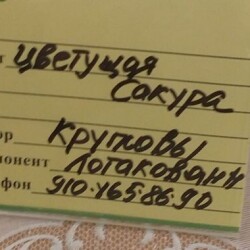 Цветущая
Сакура
ор Крутовы
понент Лотакована
фон 910.465.86.90